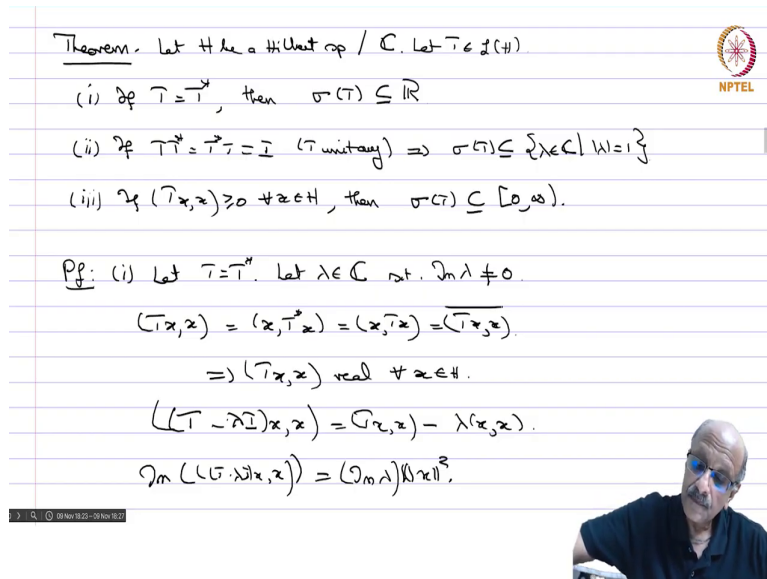 Theorem. Let H be a Hilbert sp / ℂ. Let T ∈ 𝓛(H)
NPTEL
(i) If T = T*, then σ(T) ⊆ ℝ
(ii) If TT* = T*T = I (T unitary) ⇒ σ(T) ⊆ {λ∈ℂ | |λ|=1}
(iii) If (Tx,x) ≥ 0 ∀x∈H, then σ(T) ⊆ [0,∞).
Pf: (i) Let T = T*. Let λ ∈ ℂ s.t. Im λ ≠ 0.
(Tx,x) = (x,T*x) = (x,Tx) = \overline{(Tx,x)}.
⇒ (Tx,x) real ∀ x ∈ H.
((T − λI)x,x) = (Tx,x) − λ(x,x).
Im (((T-λI)x,x)) = (Im λ)‖x‖².
09 Nov 18:23 – 09 Nov 18:27